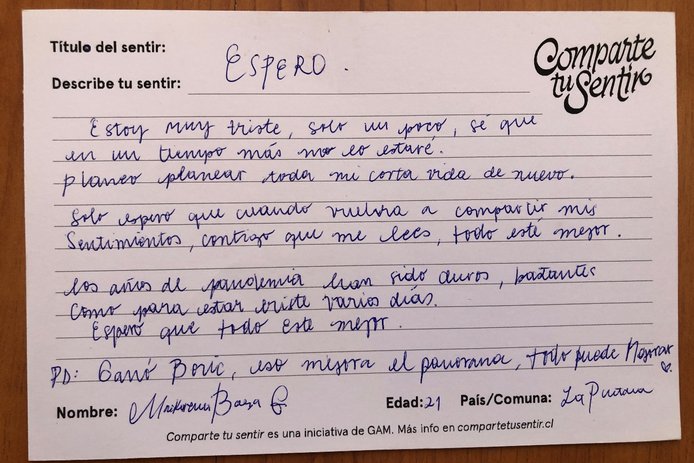 Título del sentir: ESPERO.
Comparte tu Sentir
Describe tu sentir:
Estoy muy triste, solo un poco, sé que
en un tiempo más no lo estaré.
Planeo planear toda mi corta vida de nuevo.
Solo espero que cuando vuelva a compartir mis
sentimientos, contigo que me lees, todo esté mejor.
Los años de pandemia han sido duros, bastantes
como para estar triste varios días.
Espero que todo este mejor.
PD: Ganó Boric, eso mejora el panorama, todo puede Mejorar
Nombre: Baeza Edad: 21 País/Comuna: La Pintana
Comparte tu sentir es una iniciativa de GAM. Más info en compartetusentir.cl